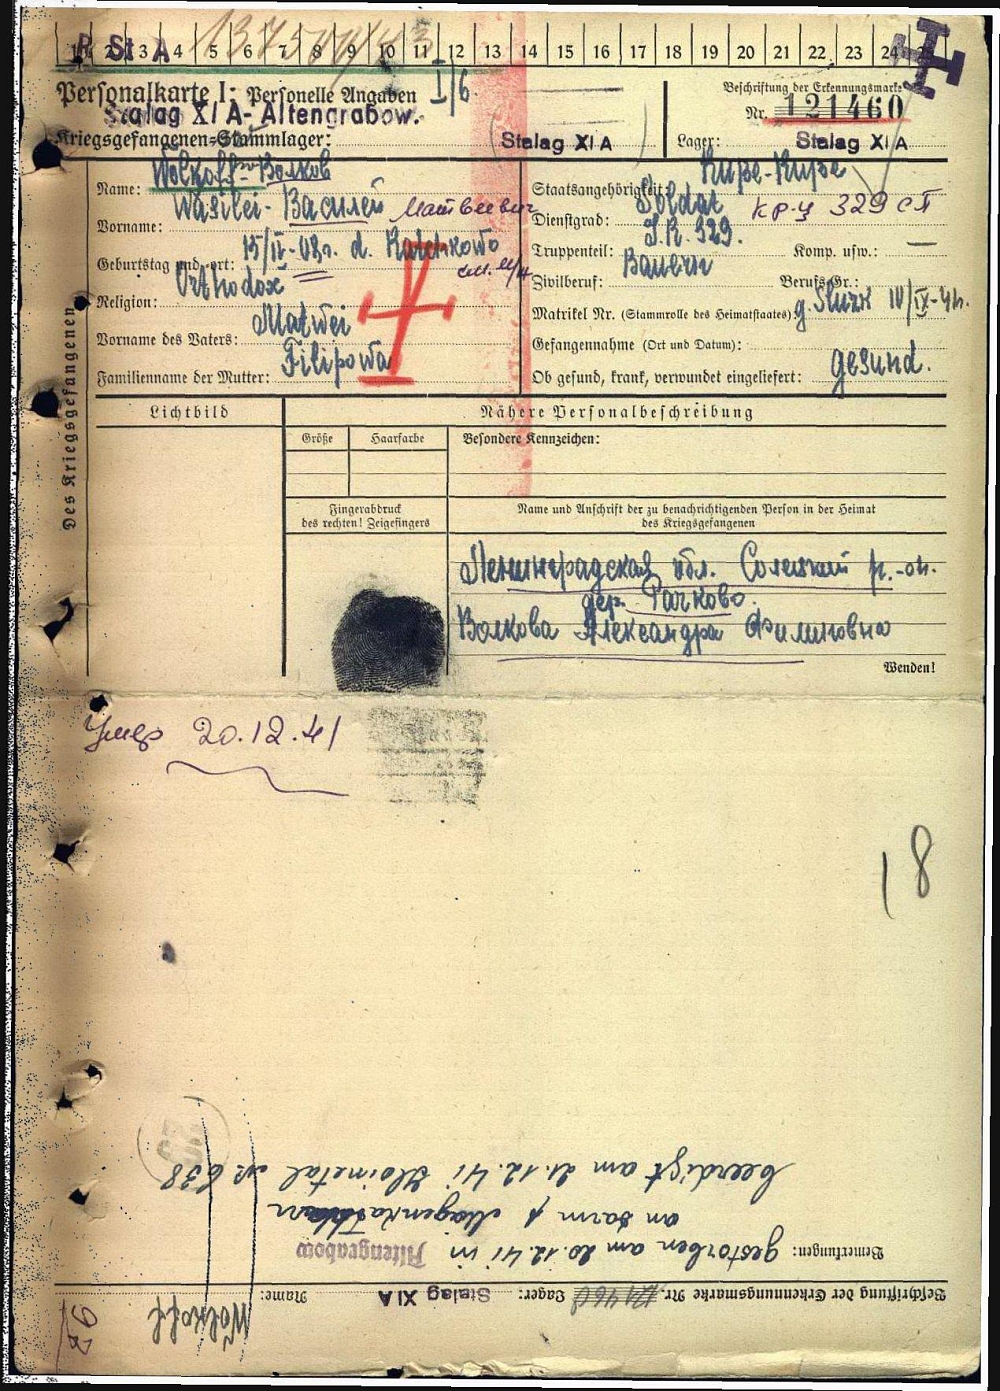 R. St. A
1 2 3 4 5 6 7 8 9 10 11 12 13 14 15 16 17 18 19 20 21 22 23 24
Personalkarte I: Personelle Angaben
I/6.
Stalag XI A - Altengrabow.
Kriegsgefangenen-Stammlager:
Stalag XI A
Beschriftung der Erkennungsmarke
Nr. 121460
Lager: Stalag XI A
Des Kriegsgefangenen
Name: Wolkoff - Волков
Vorname: Wasilei - Василей Матвеевич
Geburtstag und -ort: 15/IV-03г. d. Ratchkowo
Religion: Orthodox
Vorname des Vaters: Matwei
Familienname der Mutter: Filipowa
Staatsangehörigkeit: Ruße-Ruße
Dienstgrad: Soldat кр-ц 329 сп
Truppenteil: I.R. 329. Komp. usw.: —
Zivilberuf: Bauern Berufs-Gr.:
Matrikel Nr. (Stammrolle des Heimatstaates): g. Sluzk IV/IX-41.
Gefangennahme (Ort und Datum):
Ob gesund, krank, verwundet eingeliefert: gesund.
Lichtbild
Nähere Personalbeschreibung
Größe Haarfarbe Besondere Kennzeichen:
Fingerabdruck
des rechten! Zeigefingers
Name und Anschrift der zu benachrichtigenden Person in der Heimat
des Kriegsgefangenen
Ленинградская обл. Солецкий р.-он.
дер. Рачково.
Волкова Александра Филиповна
Wenden!
Умер 20.12.41
18
Beschriftung der Erkennungsmarke Nr. 121460 Lager: Stalag XI A Name: Wolkoff
Bemerkungen: gestorben am 20.12.41 in Altengrabow
an Darm & Magenkatarr
beerdigt am 21.12.41 № 638